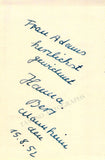 Frau Adams
herzlichst
gewidmet
Hanna
Dem
Mannheim
den
15.8.52